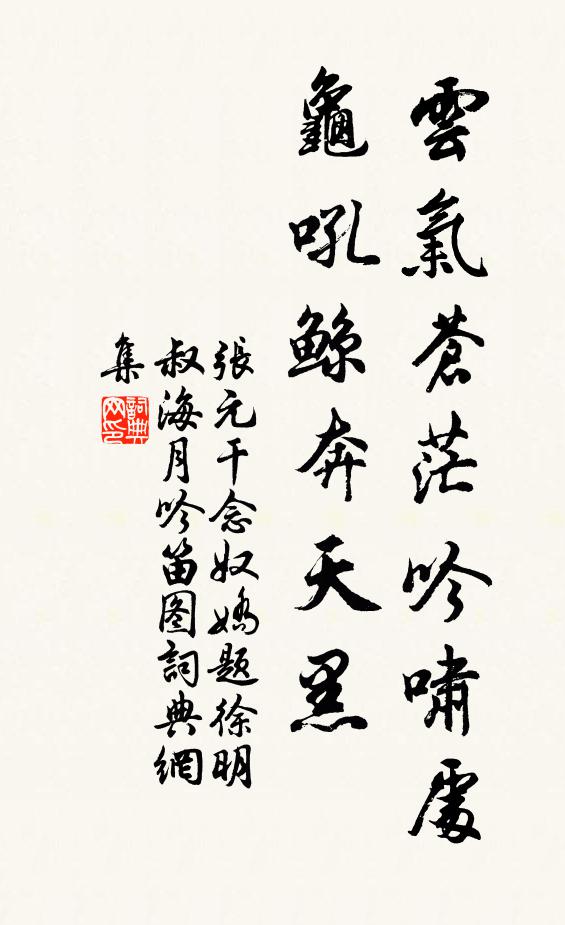 雲氣蒼茫吟嘯處
龜吼鯨奔天黑
張元干念奴嬌題徐明
叔海月吟笛图詞典網
集
詞典
网印